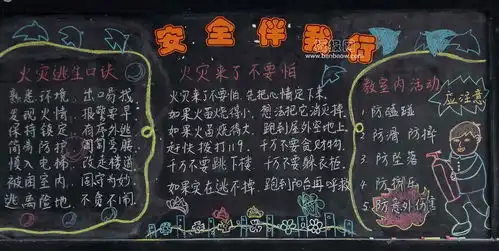 安全伴我行
www.banbaow.com
火灾逃生口诀
熟悉环境，出口易找
发现火情，报警要早
保持镇定，有序外逃
简易防护，匍匐弯腰
慎入电梯，改走楼道
被困室内，固守为妙
逃离险地，不负不闹
火灾来了不要怕
火灾来了不要怕，先把心情定下来。
如果火苗烧得小，想法把它消灭掉。
如果火苗烧得大，跑到屋外空地上。
赶快拨打119，千万不要贪财物。
千万不要跳下楼，千万不要躲衣柜。
如果实在逃不掉，跑到阳台再呼救
教室内活动
应注意
1 防磕碰
2 防滑 防摔
3 防坠落
4 防挤压
5 防意外伤害